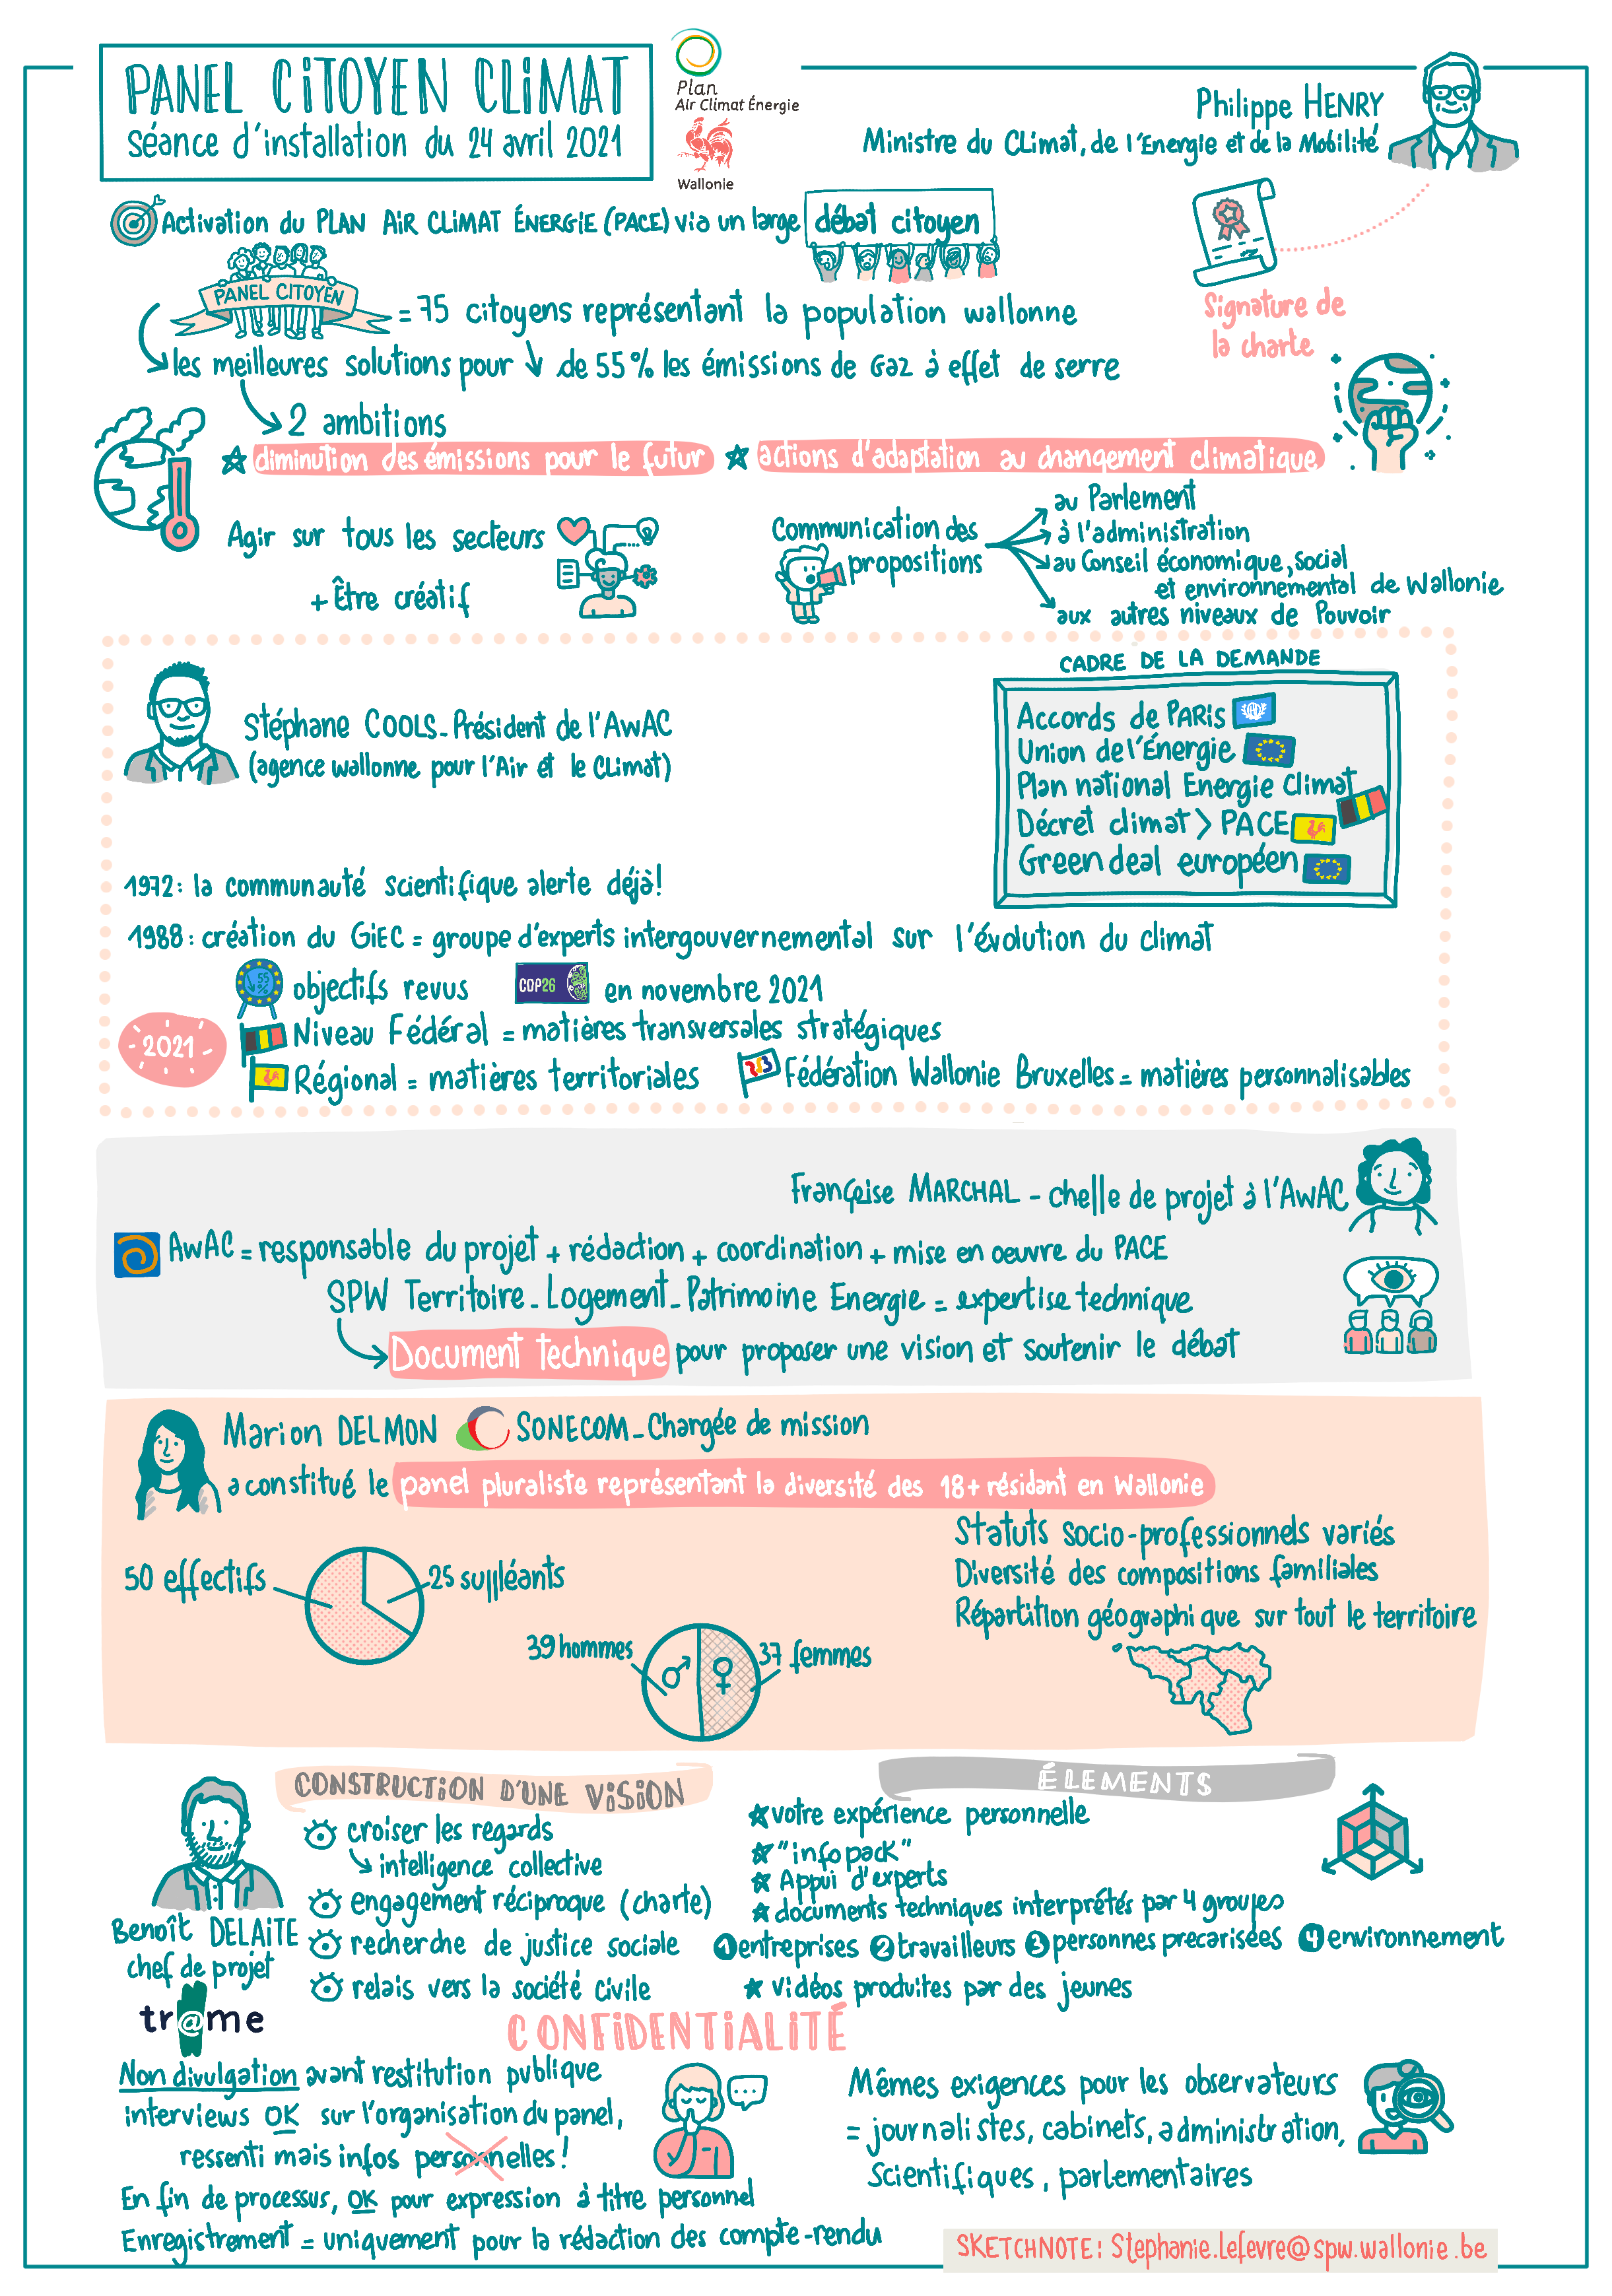 PANEL CITOYEN CLIMAT
séance d'installation du 24 avril 2021
Plan
Air Climat Énergie
Wallonie
Philippe HENRY
Ministre du Climat, de l'Energie et de la Mobilité
Activation du PLAN AIR CLIMAT ÉNERGIE (PACE) via un large débat citoyen
PANEL CITOYEN
= 75 citoyens représentant la population wallonne
Signature de
la charte
les meilleures solutions pour ↓ de 55% les émissions de Gaz à effet de serre
2 ambitions
diminution des émissions pour le futur
actions d'adaptation au changement climatique
Agir sur tous les secteurs
+ Être créatif
Communication des
propositions
au Parlement
à l'administration
au Conseil économique, social
et environnemental de Wallonie
aux autres niveaux de Pouvoir
Stéphane COOLS - Président de l'AwAC
(agence wallonne pour l'Air et le Climat)
CADRE DE LA DEMANDE
Accords de PARIS
Union de l'Énergie
Plan national Energie Climat
Décret climat > PACE
Green deal européen
1972 : la communauté scientifique alerte déjà!
1988 : création du GIEC = groupe d'experts intergouvernemental sur l'évolution du climat
55 %
objectifs revus
COP26
en novembre 2021
2021
Niveau Fédéral = matières transversales stratégiques
Régional = matières territoriales
Fédération Wallonie Bruxelles = matières personnalisables
Françoise MARCHAL - cheffe de projet à l'AwAC
AwAC = responsable du projet + rédaction + coordination + mise en oeuvre du PACE
SPW Territoire - Logement - Patrimoine Energie = expertise technique
Document technique pour proposer une vision et soutenir le débat
Marion DELMON
SONECOM - Chargée de mission
a constitué le panel pluraliste représentant la diversité des 18+ résidant en Wallonie
50 effectifs
25 suppléants
39 hommes
37 femmes
Statuts socio-professionnels variés
Diversité des compositions familiales
Répartition géographique sur tout le territoire
Benoît DELAITE
chef de projet
tr@me
CONSTRUCTION D'UNE VISION
croiser les regards
intelligence collective
engagement réciproque (charte)
recherche de justice sociale
relais vers la société civile
ÉLEMENTS
votre expérience personnelle
"infopack"
Appui d'experts
documents techniques interprétés par 4 groupes
1 entreprises 2 travailleurs 3 personnes precarisées 4 environnement
vidéos produites par des jeunes
CONFIDENTIALITÉ
Non divulgation avant restitution publique
interviews OK sur l'organisation du panel,
ressenti mais infos personnelles!
En fin de processus, OK pour expression à titre personnel
Enregistrement = uniquement pour la rédaction des compte-rendu
...
Mêmes exigences pour les observateurs
= journalistes, cabinets, administration,
Scientifiques, parlementaires
SKETCHNOTE: Stephanie.Lefevre@spw.wallonie.be